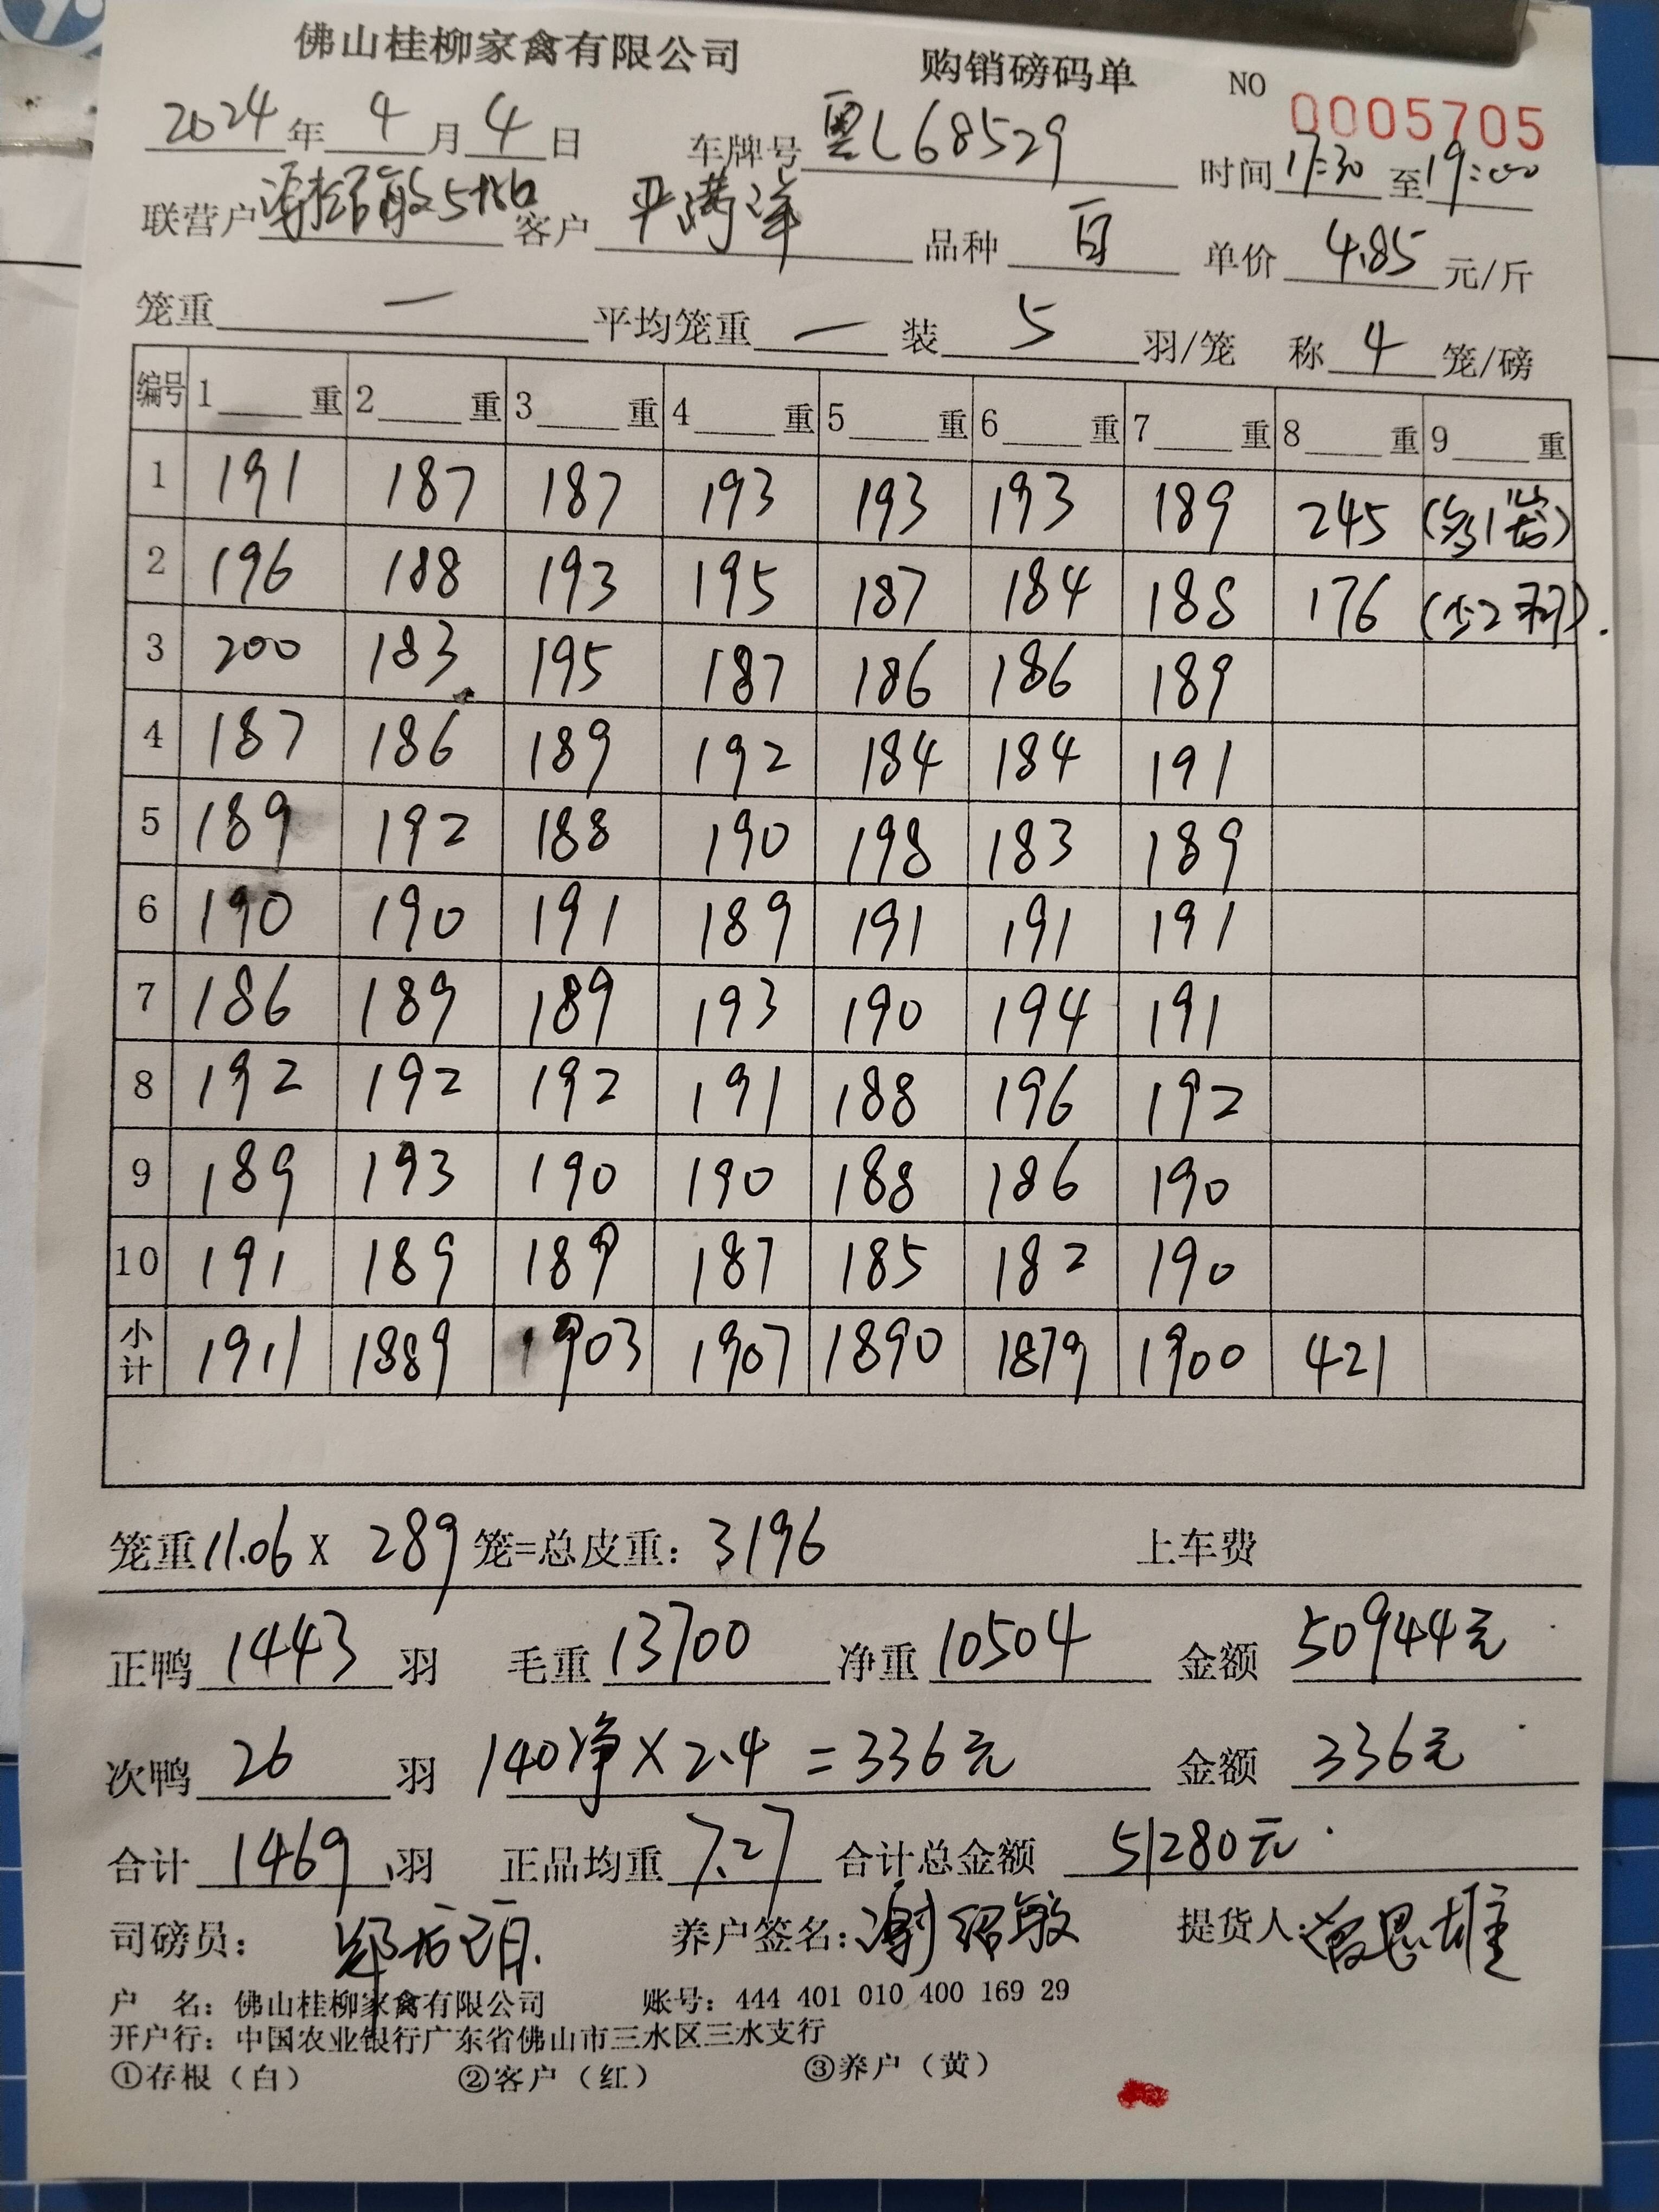 佛山桂柳家禽有限公司 购销磅码单 NO 0005705
2024年4月4日 车牌号 粤L68529 时间 17:30 至 19:00
联营户 谢绍敏 客户 平满洋 品种 白 单价 4.85 元/斤
笼重 一 平均笼重 一 装 5 羽/笼 称 4 笼/磅
编号 1 重 2 重 3 重 4 重 5 重 6 重 7 重 8 重 9 重
1 191 187 187 193 193 193 189 245 (多1笼)
2 196 188 193 195 187 184 188 176 (少2羽).
3 200 183 195 187 186 186 189
4 187 186 189 192 184 184 191
5 189 192 188 190 198 183 189
6 190 190 191 189 191 191 191
7 186 189 189 193 190 194 191
8 192 192 192 191 188 196 192
9 189 193 190 190 188 186 190
10 191 189 189 187 185 182 190
小计 1911 1889 1903 1907 1890 1879 1900 421
笼重 11.06 X 289 笼=总皮重: 3196 上车费
正鸭 1443 羽 毛重 13700 净重 10504 金额 50944元
次鸭 26 羽 140净×2.4=336元 金额 336元
合计 1469 羽 正品均重 7.27 合计总金额 51280元
司磅员: 养户签名: 谢绍敏 提货人: 曾思雄
户 名: 佛山桂柳家禽有限公司 账号: 444 401 010 400 169 29
开户行: 中国农业银行广东省佛山市三水区三水支行
①存根（白） ②客户（红） ③养户（黄）